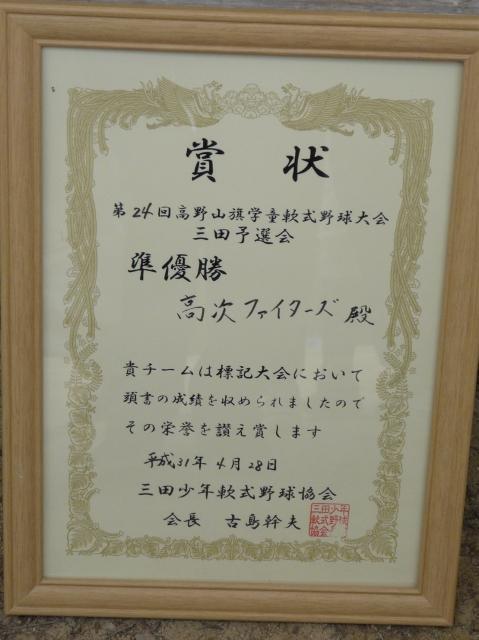 賞状
第24回高野山旗学童軟式野球大会
三田予選会
準優勝
高次ファイターズ殿
貴チームは標記大会において
頭書の成績を収められましたので
その栄誉を讃え賞します
平成31年4月28日
三田少年軟式野球協会
会長 古島幹夫
三田少年
軟式野球
協会